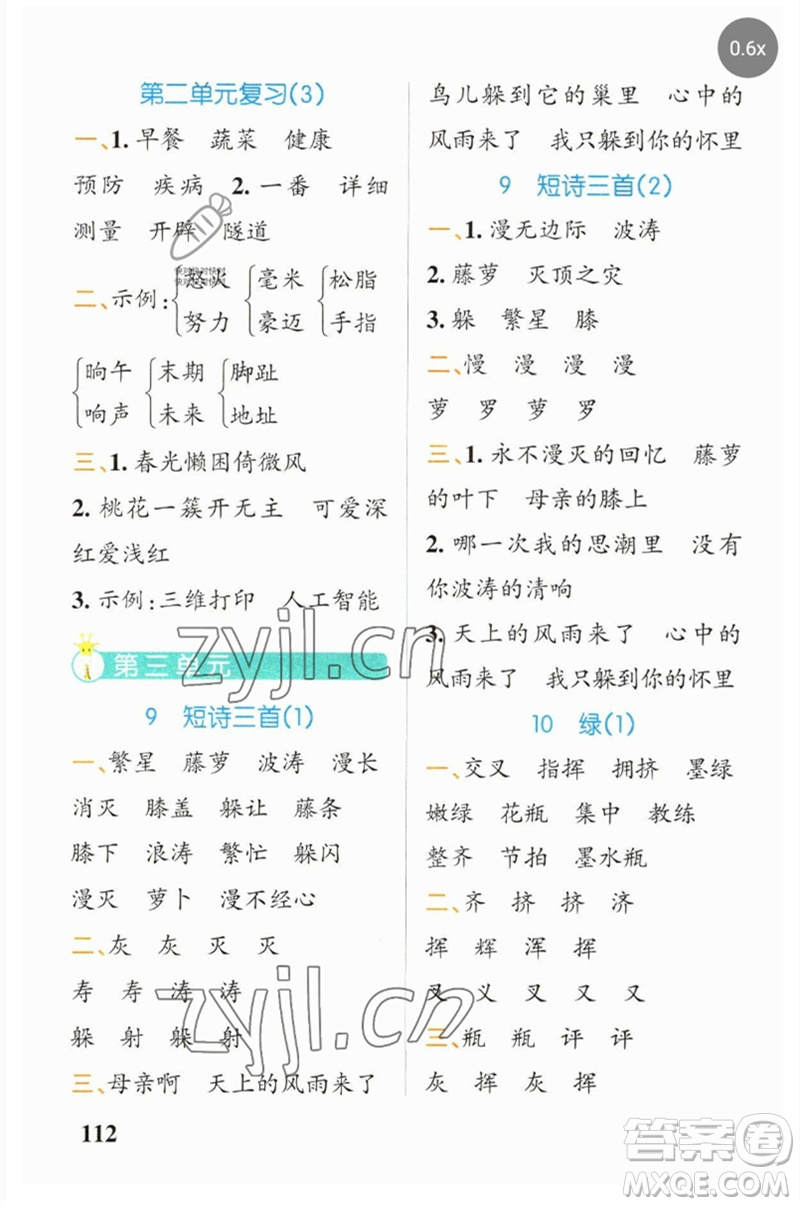 0.6x
第二单元复习(3)
一、1. 早餐 蔬菜 健康
预防 疾病 2. 一番 详细
测量 开辟 隧道
二、示例: 怒火 毫米 松脂
努力 豪迈 手指
晌午 末期 脚趾
响声 未来 地址
三、1. 春光懒困倚微风
2. 桃花一簇开无主 可爱深
红爱浅红
3. 示例:三维打印 人工智能
第三单元
9 短诗三首(1)
一、繁星 藤萝 波涛 漫长
消灭 膝盖 躲让 藤条
膝下 浪涛 繁忙 躲闪
漫灭 萝卜 漫不经心
二、灰 灰 灭 灭
寿 寿 涛 涛
躲 射 躲 射
三、母亲啊 天上的风雨来了
112
鸟儿躲到它的巢里 心中的
风雨来了 我只躲到你的怀里
9 短诗三首(2)
一、1. 漫无边际 波涛
2. 藤萝 灭顶之灾
3. 躲 繁星 膝
二、慢 漫 漫 漫
萝 罗 萝 罗
三、1. 永不漫灭的回忆 藤萝
的叶下 母亲的膝上
2. 哪一次我的思潮里 没有
你波涛的清响
3. 天上的风雨来了 心中的
风雨来了 我只躲到你的怀里
10 绿(1)
一、交叉 指挥 拥挤 墨绿
嫩绿 花瓶 集中 教练
整齐 节拍 墨水瓶
二、齐 挤 挤 济
挥 辉 浑 挥
叉 义 叉 又 又
三、瓶 瓶 评 评
灰 挥 灰 挥
zyjl.cn
zyjl.cn
答案圈
MXQE.COM